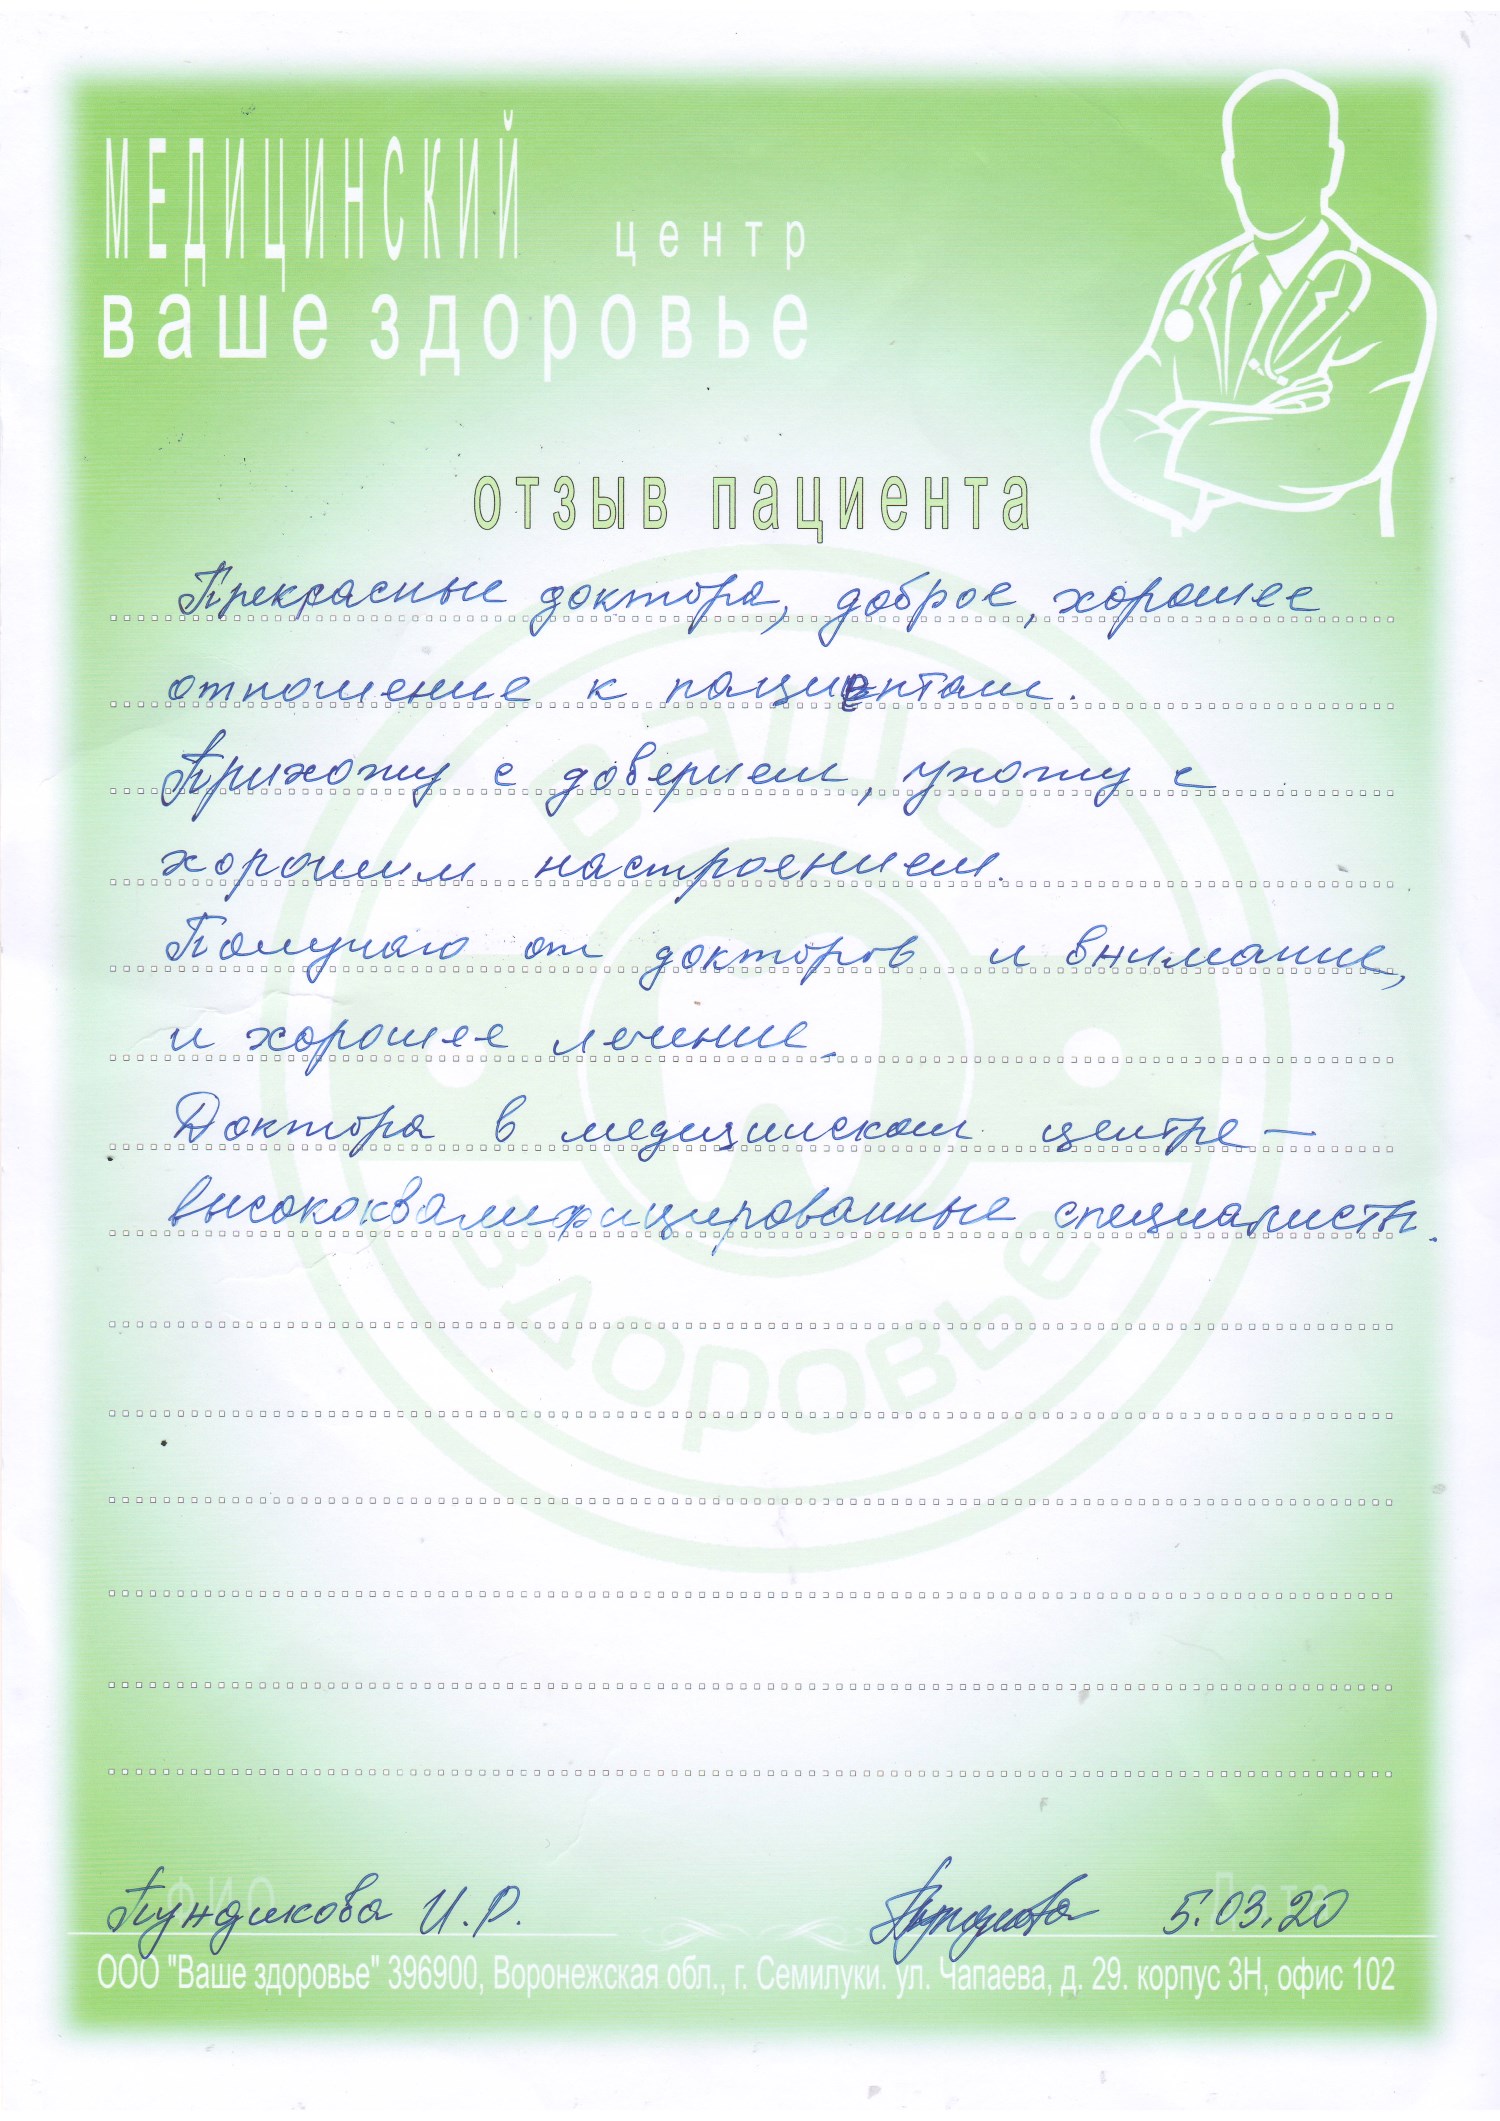 МЕДИЦИНСКИЙ центр
ваше здоровье
отзыв пациента
Прекрасные доктора, доброе, хорошее
отношение к пациентам.
Прихожу с доверием, ухожу с
хорошим настроением.
Получаю от докторов и внимание,
и хорошее лечение.
Доктора в медицинском центре –
высококвалифицированные специалисты.
Ваше
здоровье
ФИО
Дата
Пундикова И.Р.
5.03.20
ООО "Ваше здоровье" 396900, Воронежская обл., г. Семилуки. ул. Чапаева, д. 29. корпус 3Н, офис 102